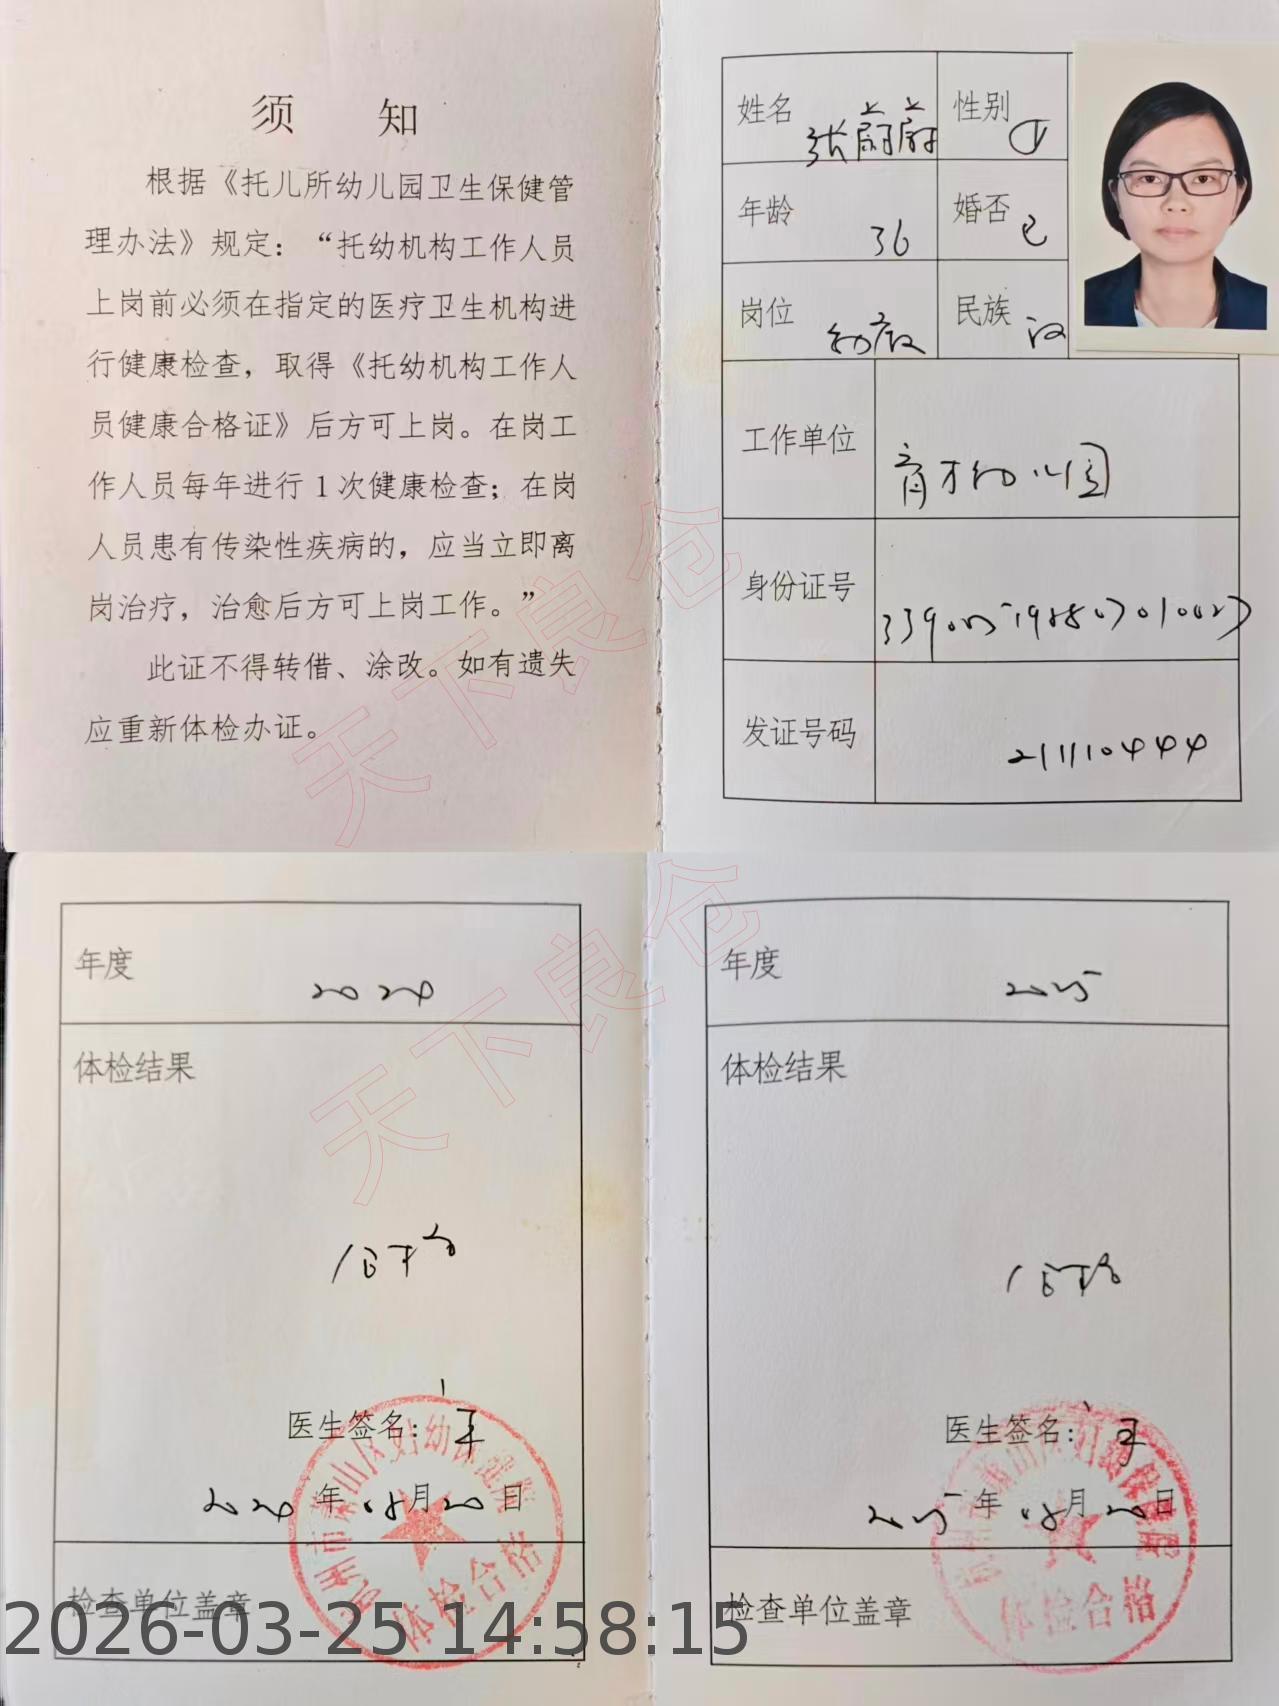 须 知
根据《托儿所幼儿园卫生保健管
理办法》规定：“托幼机构工作人员
上岗前必须在指定的医疗卫生机构进
行健康检查，取得《托幼机构工作人
员健康合格证》后方可上岗。在岗工
作人员每年进行1次健康检查；在岗
人员患有传染性疾病的，应当立即离
岗治疗，治愈后方可上岗工作。”
此证不得转借、涂改。如有遗失
应重新体检办证。
姓名 张蔚蔚 性别 女
年龄 36 婚否 已
岗位 幼教 民族 汉
工作单位 育才幼儿园
身份证号
发证号码 211110444
天下良仓
年度 2024
体检结果
合格
医生签名：王
2024年08月20日
检查单位盖章
杭州市萧山区妇幼保健院
体检合格
年度 2025
体检结果
合格
医生签名：王
2025年08月20日
检查单位盖章
杭州市萧山区妇幼保健院
体检合格
天下良仓
2026-03-25 14:58:15